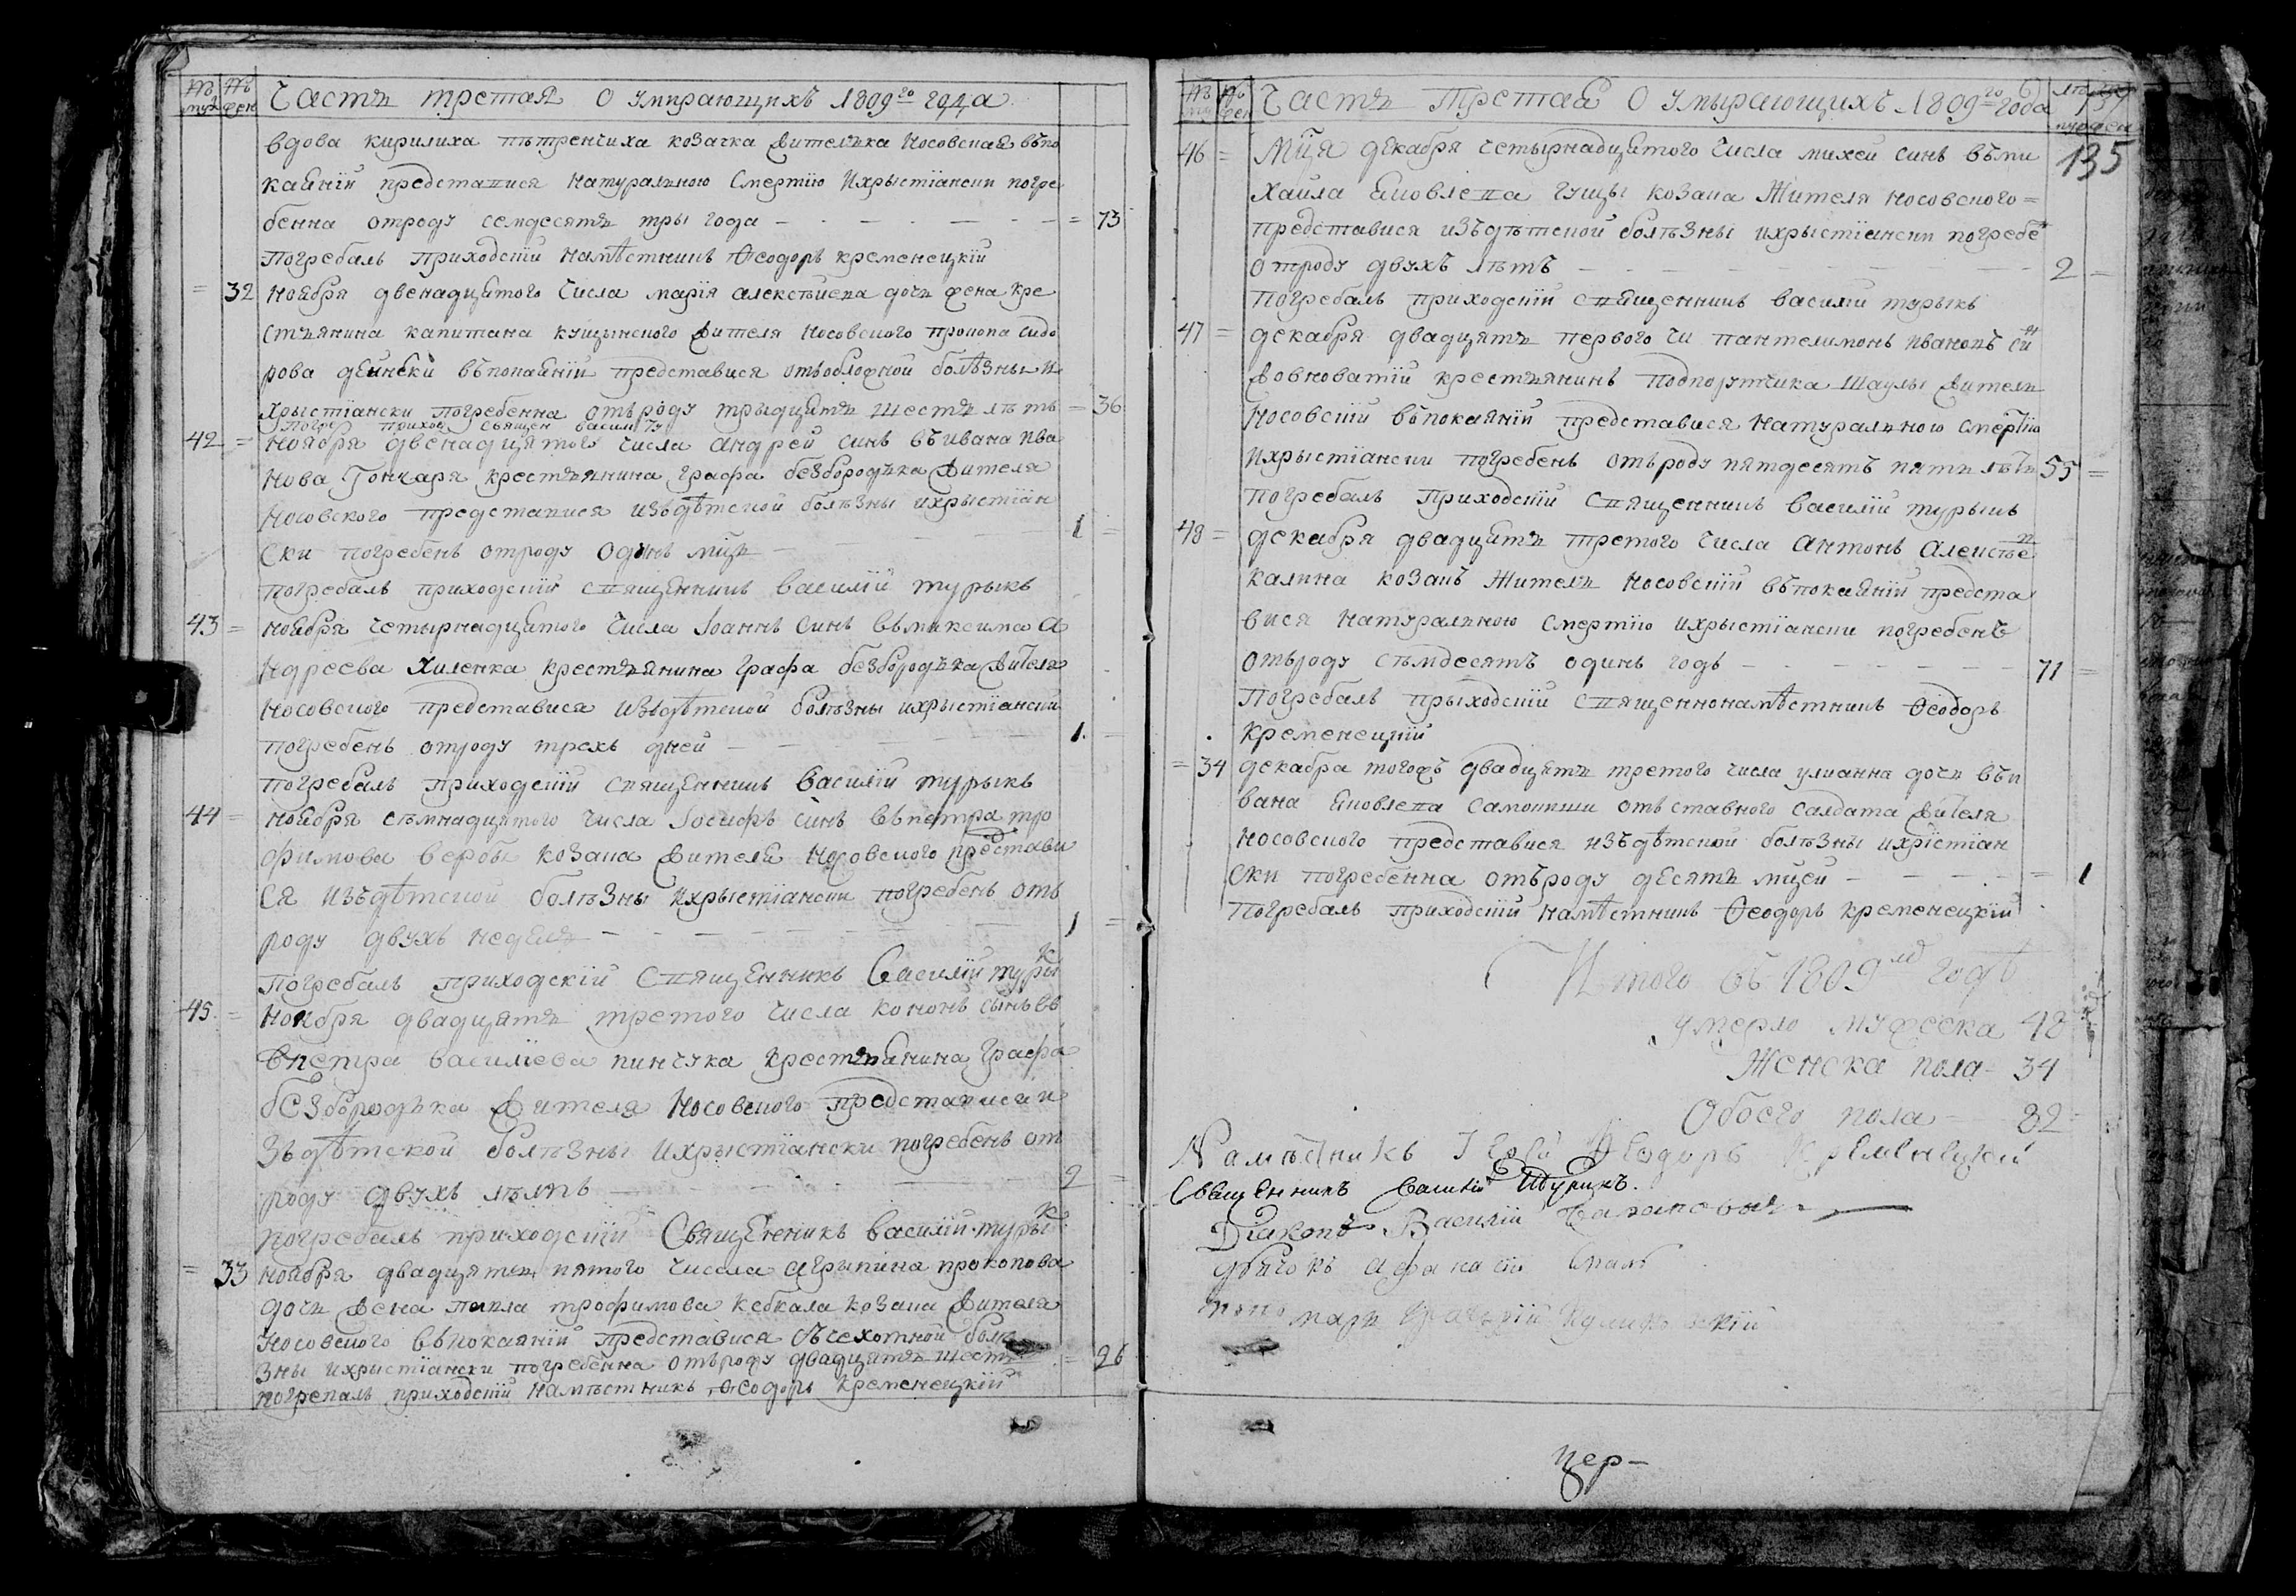 № муж № жен Часть третая О умирающихъ 1809го года
вдова кирилиха пѣтренчиха козачка жителка Носовская въпо
каянїи представися натуралною смертїю ихрыстїански погре
бенна отроду семдесятъ тры года = 73
Погребалъ приходскїй намѣстникъ Ѳеодоръ кременецкїй
= 32 Ноября двенадцятого числа марїя алексѣиева дочь жена кре
стьянина капитана куцынского жителя Носовского прокопа сидо
рова въпокаянїи представися отъобложной болѣзны и
хрыстїански погребенна отъроду трыдцять шесть лѣтъ = 36
Погре приход священ васил Ту
42 = Ноября двенадцятого числа Андрей синъ въивана ива
нова Гончаря крестьянина графа безбородька жителя
Носовского представися изъдѣтской болѣзны ихрыстїан
ски погребенъ отроду одинъ мцъ 1 =
погребалъ приходскїй священникъ василїй турыкъ
43 = ноября четырнадцятого числа Іоаннъ синъ въмаксима а
ндреева Хиленка крестьянина графа безбородька жителя
Носовского представися изъдѣтской болѣзны ихрыстїански
погребенъ отроду трехъ дней 1
погребалъ приходскїй священникъ василїй турыкъ
44 = ноября сѣмнадцятого числа Іосифъ синъ въпетра тро
фимова вербы козака жителя Носовского представи
ся изъдѣтской болѣзны ихрыстїански погребенъ отъ
роду двухъ недель 1 =
погребалъ приходскїй священникъ василїй турыкъ
45 = Ноября двадцять третого числа кононъ сынъ въ
впетра василїева пинчука крестьянина графа
безбородька жителя Носовского представися и
зъдѣтской болѣзны ихрыстїански погребенъ от
роду двухъ лѣтъ 2 =
погребалъ приходскїй Священикъ василїй турык
= 33 ноября двадцять пятого числа агрыпина прокопова
дочь жена павла трофимова кебкала козака жителя
Носовского въпокаянїи представися съчехотной болѣ
зны ихристїански погребенна отъроду двадцять шесть = 26
погрепалъ приходскїй намѣстникъ Ѳеодоръ Кременецкїй
Часть Третая О умырающихъ 1809го года
135
46 = Мця декабря четырнадцятого числа михей синъ въми
хаила яковлева гущы козака Жителя Носовского =
представися изъдѣтской болѣзны ихрыстїански погребе
отроду двухъ лѣтъ 2 =
погребалъ приходскїй священникъ василїй турыкъ
47 = декабря двадцять первого чи пантелимонъ ивановъ си
вовковатїй крестьянинъ подпорутчика Шаулы жителъ
Носовскїй въпокаянїи представися натуралною смертїю
ихрыстїански погребенъ отъроду пятдесятъ пяти лѣтъ 55 =
погребалъ приходскїй священникъ василїй турыкъ
48 = декабря двадцять третого числа Антонъ Алексѣе
калина козакъ Жителъ Носовскїй въпокаянїи предста
вися натуралною смертїю ихрыстїански погребенъ
отъроду сѣмдесятъ одинъ годъ 71 =
Погребалъ прыходскїй священнонамѣстникъ Ѳеодоръ
кременецкїй
= 34 декабра тогожъ двадцять третого числа улианна дочь въи
вана яковлева самокиши отъставного салдата жителя
Носовского представися изъдѣтской болѣзны ихрїстїан
ски погребенна отъроду десять мцей = 1
погребалъ приходскїй намѣстникъ Ѳеодоръ кременецкїй
Итого въ 1809мъ годѣ
умерло мужеска 48
Женска пола - 34
Обоего пола - 82
Намѣсникъ Іерей Ѳеодоръ Кременецкий
Священникъ Василій Турикъ.
Дїаконъ Василїй
Дячокъ Афанасїй
пономарь
Пер-